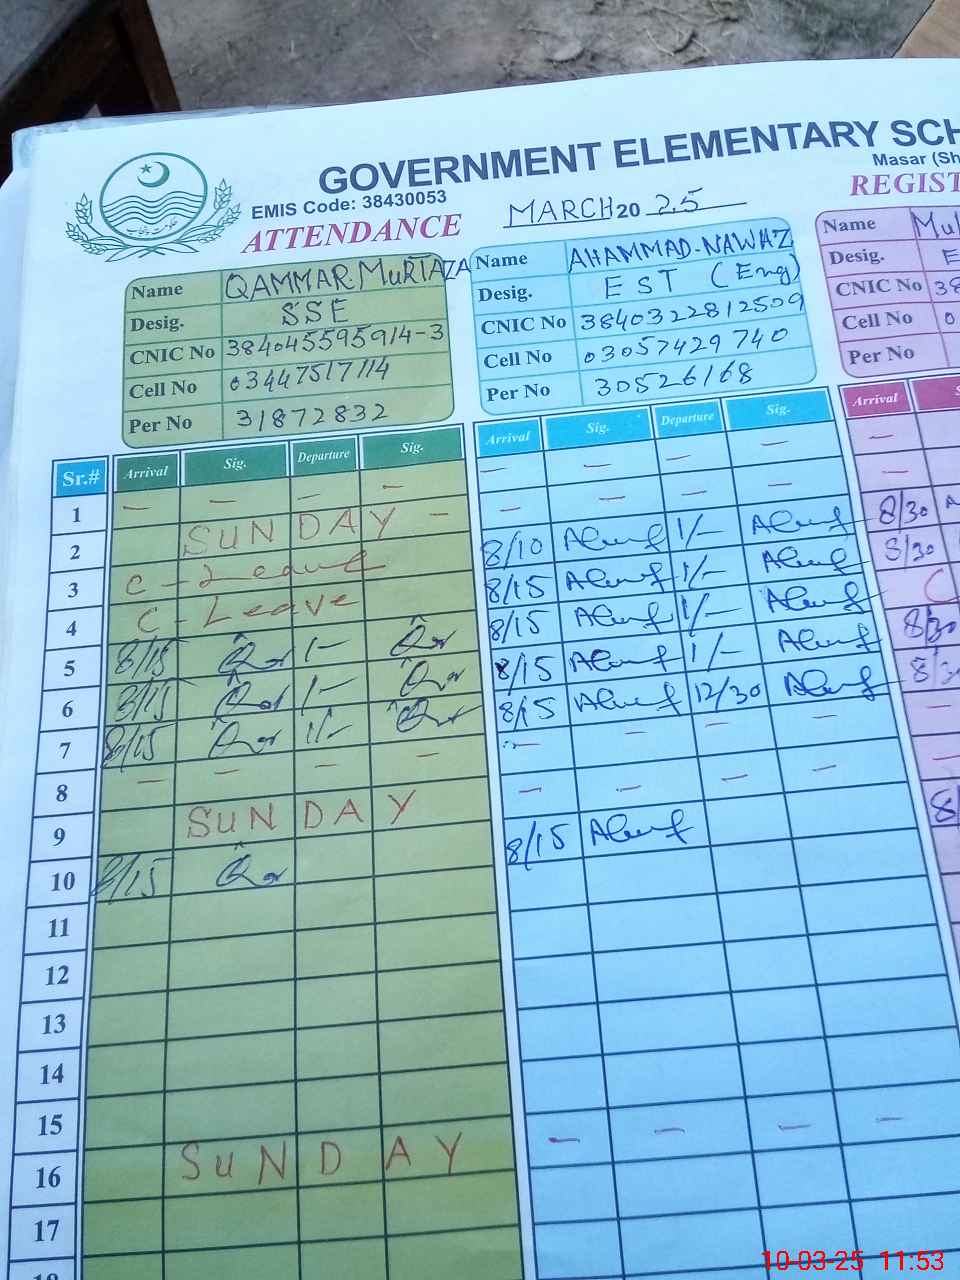 GOVERNMENT ELEMENTARY SCH
Masar (Sh
EMIS Code: 38430053
ATTENDANCE
MARCH 20 25
REGIST
Name QAMMAR MuRTAZA
Desig. SSE
CNIC No 384045595914-3
Cell No 03447517114
Per No 31872832
Name AHAMMAD-NAWAZ
Desig. E S T (Eng)
CNIC No 3840322812509
Cell No 03057429740
Per No 30526168
Name Mu
Desig. E
CNIC No 38
Cell No 0
Per No
Sr.# Arrival Sig. Departure Sig. Arrival Sig. Departure Sig. Arrival S
1 — — — — — — — — —
2 SUNDAY — — — — — —
3 C - Leave 8/10 1/- 8/30
4 C - Leave 8/15 1/- 8/30
5 8/15 1- 8/15 1/- C
6 8/15 1- 8/15 1/- 8/30
7 8/15 1/- 8/15 12/30 8/3
8 — — — — — — — — —
9 SUNDAY — — — — —
10 8/15 8/15 8/
11
12
13
14
15
16 SUNDAY — — — —
17
18
10-03-25 11:53